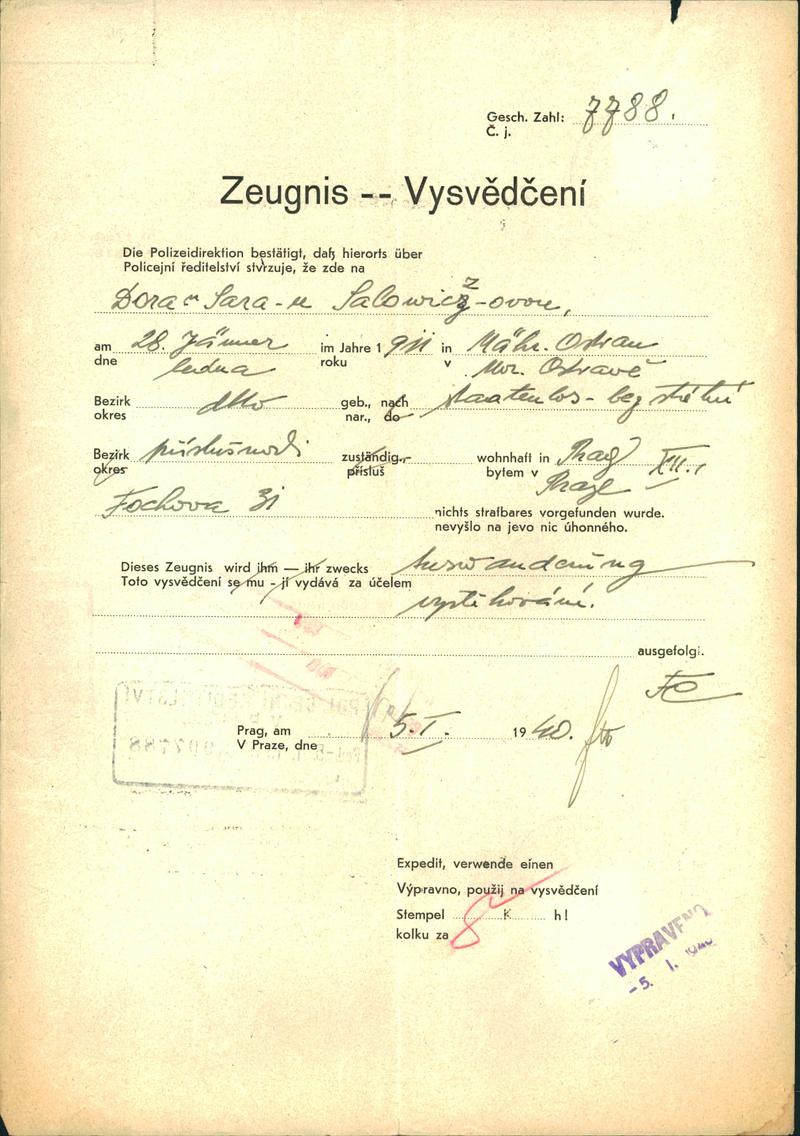 Gesch. Zahl: 7788.
Č. j.
Zeugnis -- Vysvědčení
Die Polizeidirektion bestätigt, daß hierorts über
Policejní ředitelství stvrzuje, že zde na
Dora Sara Salowicz-ovou,
am 28. Jänner im Jahre 1911 in Mähr. Ostrau
dne ledna roku v Mor. Ostravě
Bezirk dtto geb., nach staatenlos - bez státní
okres nar., do
Bezirk příslušnosti zuständig, wohnhaft in Prag XII.,
okres přísluš bytem v Praze
Fochova 31 nichts strafbares vorgefunden wurde.
nevyšlo na jevo nic úhonného.
Dieses Zeugnis wird ihm — ihr zwecks Auswanderung
Toto vysvědčení se mu - jí vydává za účelem
vystěhování.
ausgefolgt.
Prag, am 5. I. 1940.
V Praze, dne
Expedit, verwende einen
Výpravno, použij na vysvědčení
Stempel 8 K h!
kolku za
VYPRAVENO
- 5. I. 1940